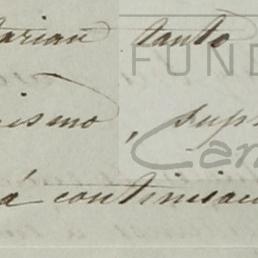 tarian tanto
FUND
ismo, sup
Can
á continuac